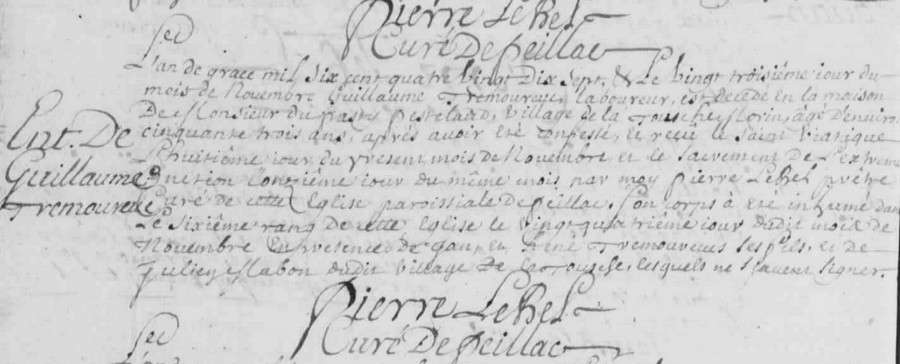 Pierre LeBel
Curé De peillac
Sed
L'an de grace mil six cent quatre vingt Dix Sept, & Le vingt troisiême iour du
mois de Novembre Guillaume Tremoureux laboureur, est decede en la maison
De Monsieur du village de la Morin, agé d'environ
cinquante trois ans, aprés avoir eté confessé, et recu le saint viatique
Lhuitiême iour du present mois de Novembre et le sacrement de L'extreme
Onction iour du même mois par moy Pierre LeBel prêtre
Curé de cette Eglise paroissiale de peillac. Son corps a eté inhumé dans
Le sixiême rang de cette Eglise le vingt quatriême iour dudit mois de
Novembre En presence de et René Tremoureux ses fils, et de
Julien Mabon dudit village de la lesquels ne sçavent signer.
Ent. De
Guillaume
Tremoureux
Pierre LeBel
Curé De peillac
Sed